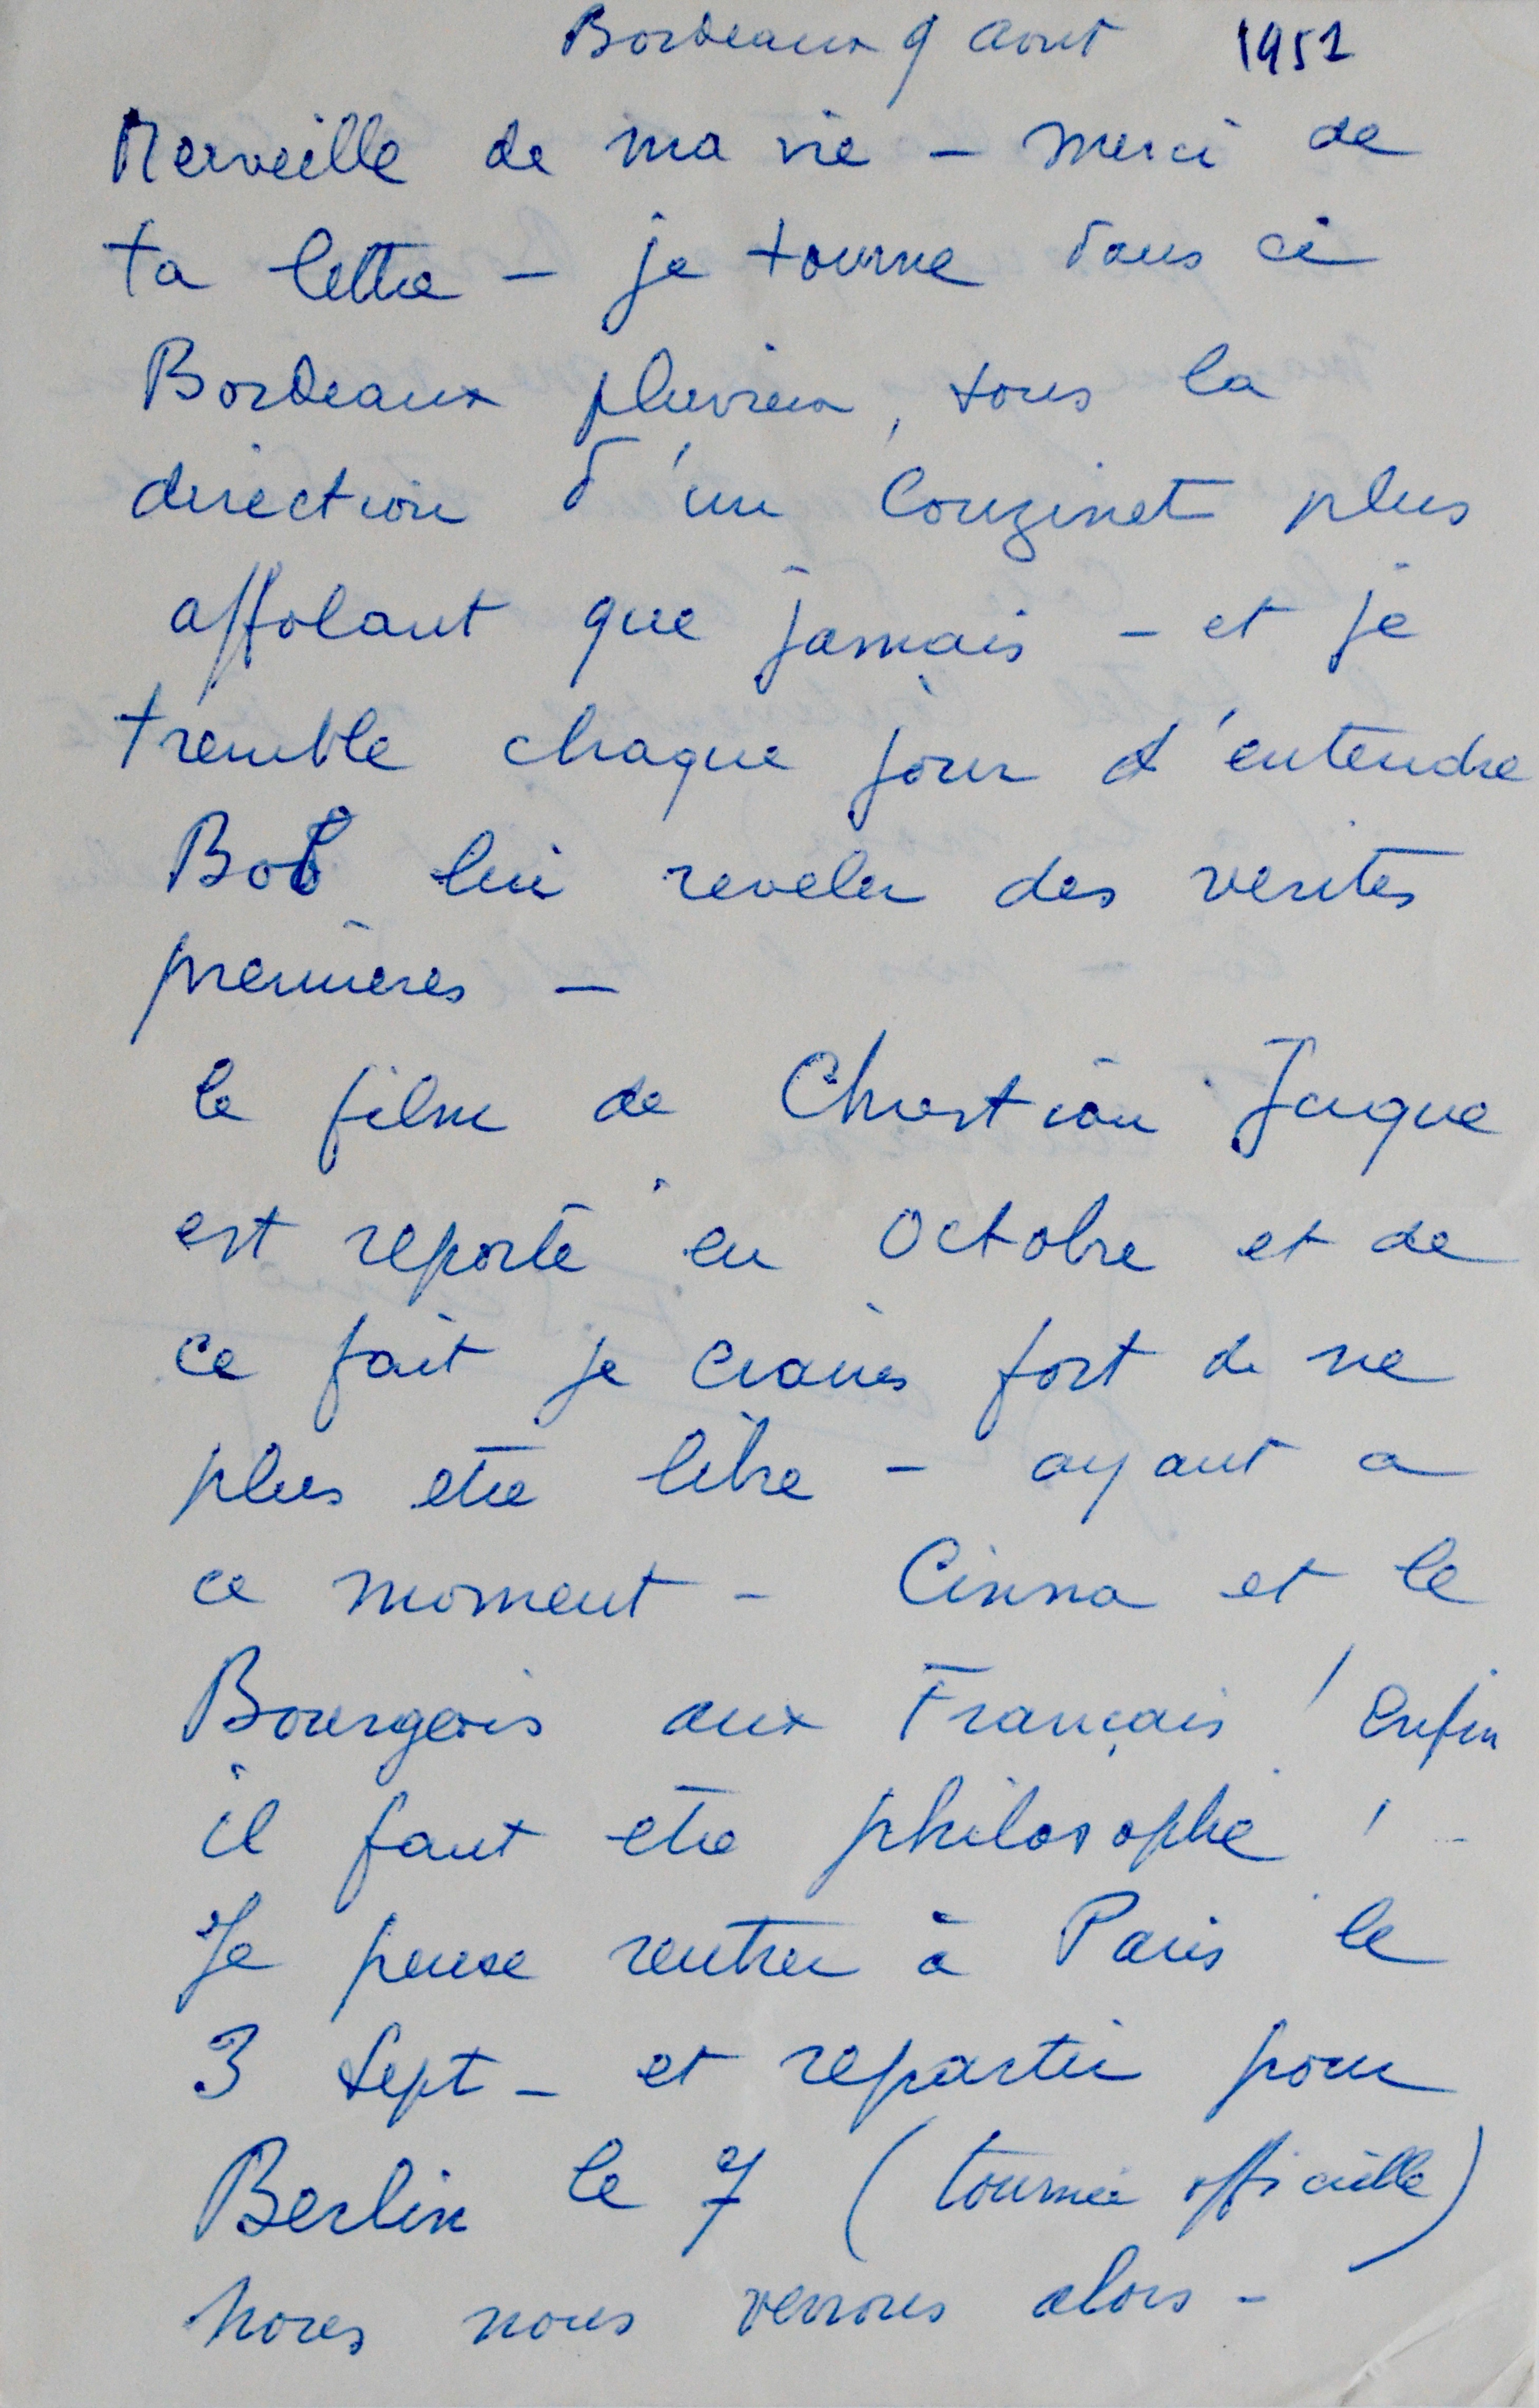 Bordeaux 9 aout 1951
Merveille de ma vie – merci de
ta lettre – je tourne dans ce
Bordeaux pluvieux, sous la
direction d'un Couzinet plus
affolant que jamais – et je
tremble chaque jour d'entendre
Bob lui reveler des verites
premières –
le film de Christian Jaque
est reporté en Octobre et de
ce fait je crains fort de ne
plus etre libre – ayant a
ce moment – Cinna et le
Bourgeois aux Français ! Enfin
il faut etre philosophe !
Je pense rentrer à Paris le
3 Sept – et repartir pour
Berlin le 7 (tournée officielle)
nous nous verrons alors –